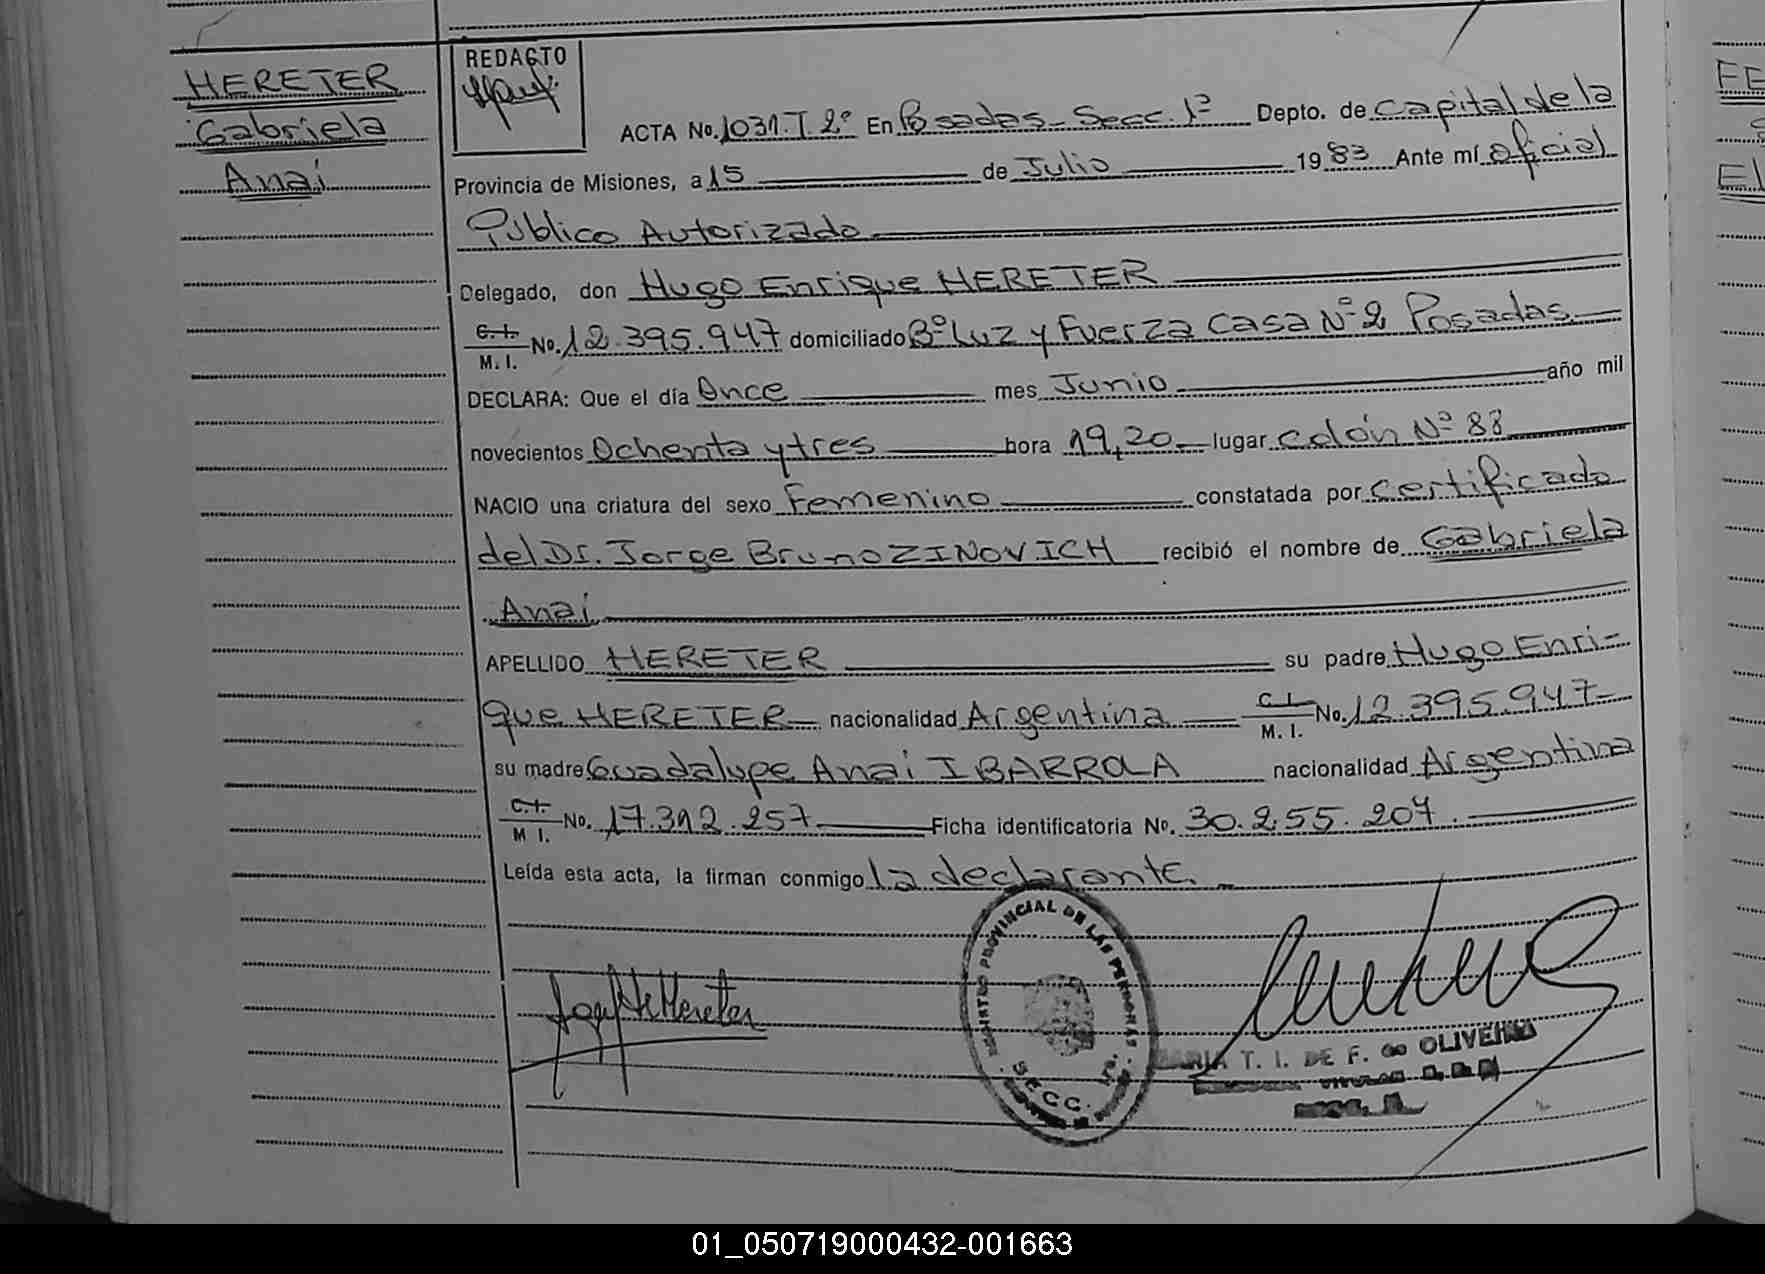 HERETER
Gabriela
Anaí
REDACTO
ACTA No. 1031. T 2º En Posadas - Secc. 1ª Depto. de Capital de la
Provincia de Misiones, a 15 de Julio 1983 Ante mí oficial
Público Autorizado
Delegado, don Hugo Enrique HERETER
C.I.
M. I. No. 12.395.947 domiciliado Bº Luz y Fuerza Casa Nº 2 Posadas
DECLARA: Que el día Once mes Junio año mil
novecientos Ochenta y tres hora 19,20 lugar Colón Nº 88
NACIO una criatura del sexo Femenino constatada por certificado
del Dr. Jorge Bruno ZINOVICH recibió el nombre de Gabriela
Anaí
APELLIDO HERETER su padre Hugo Enri-
que HERETER nacionalidad Argentina C.I.
M. I. No. 12.395.947
su madre Guadalupe Anai IBARROLA nacionalidad Argentina
C.I.
M I. No. 17.312.257 Ficha identificatoria No. 30.255.207.
Leída esta acta, la firman conmigo la declarante.
de Hereter
REGISTRO PROVINCIAL DE LAS PERSONAS
SECC. 1ra.
MARIA T. I. DE F. de OLIVEIRA
FE
EL
01_050719000432-001663